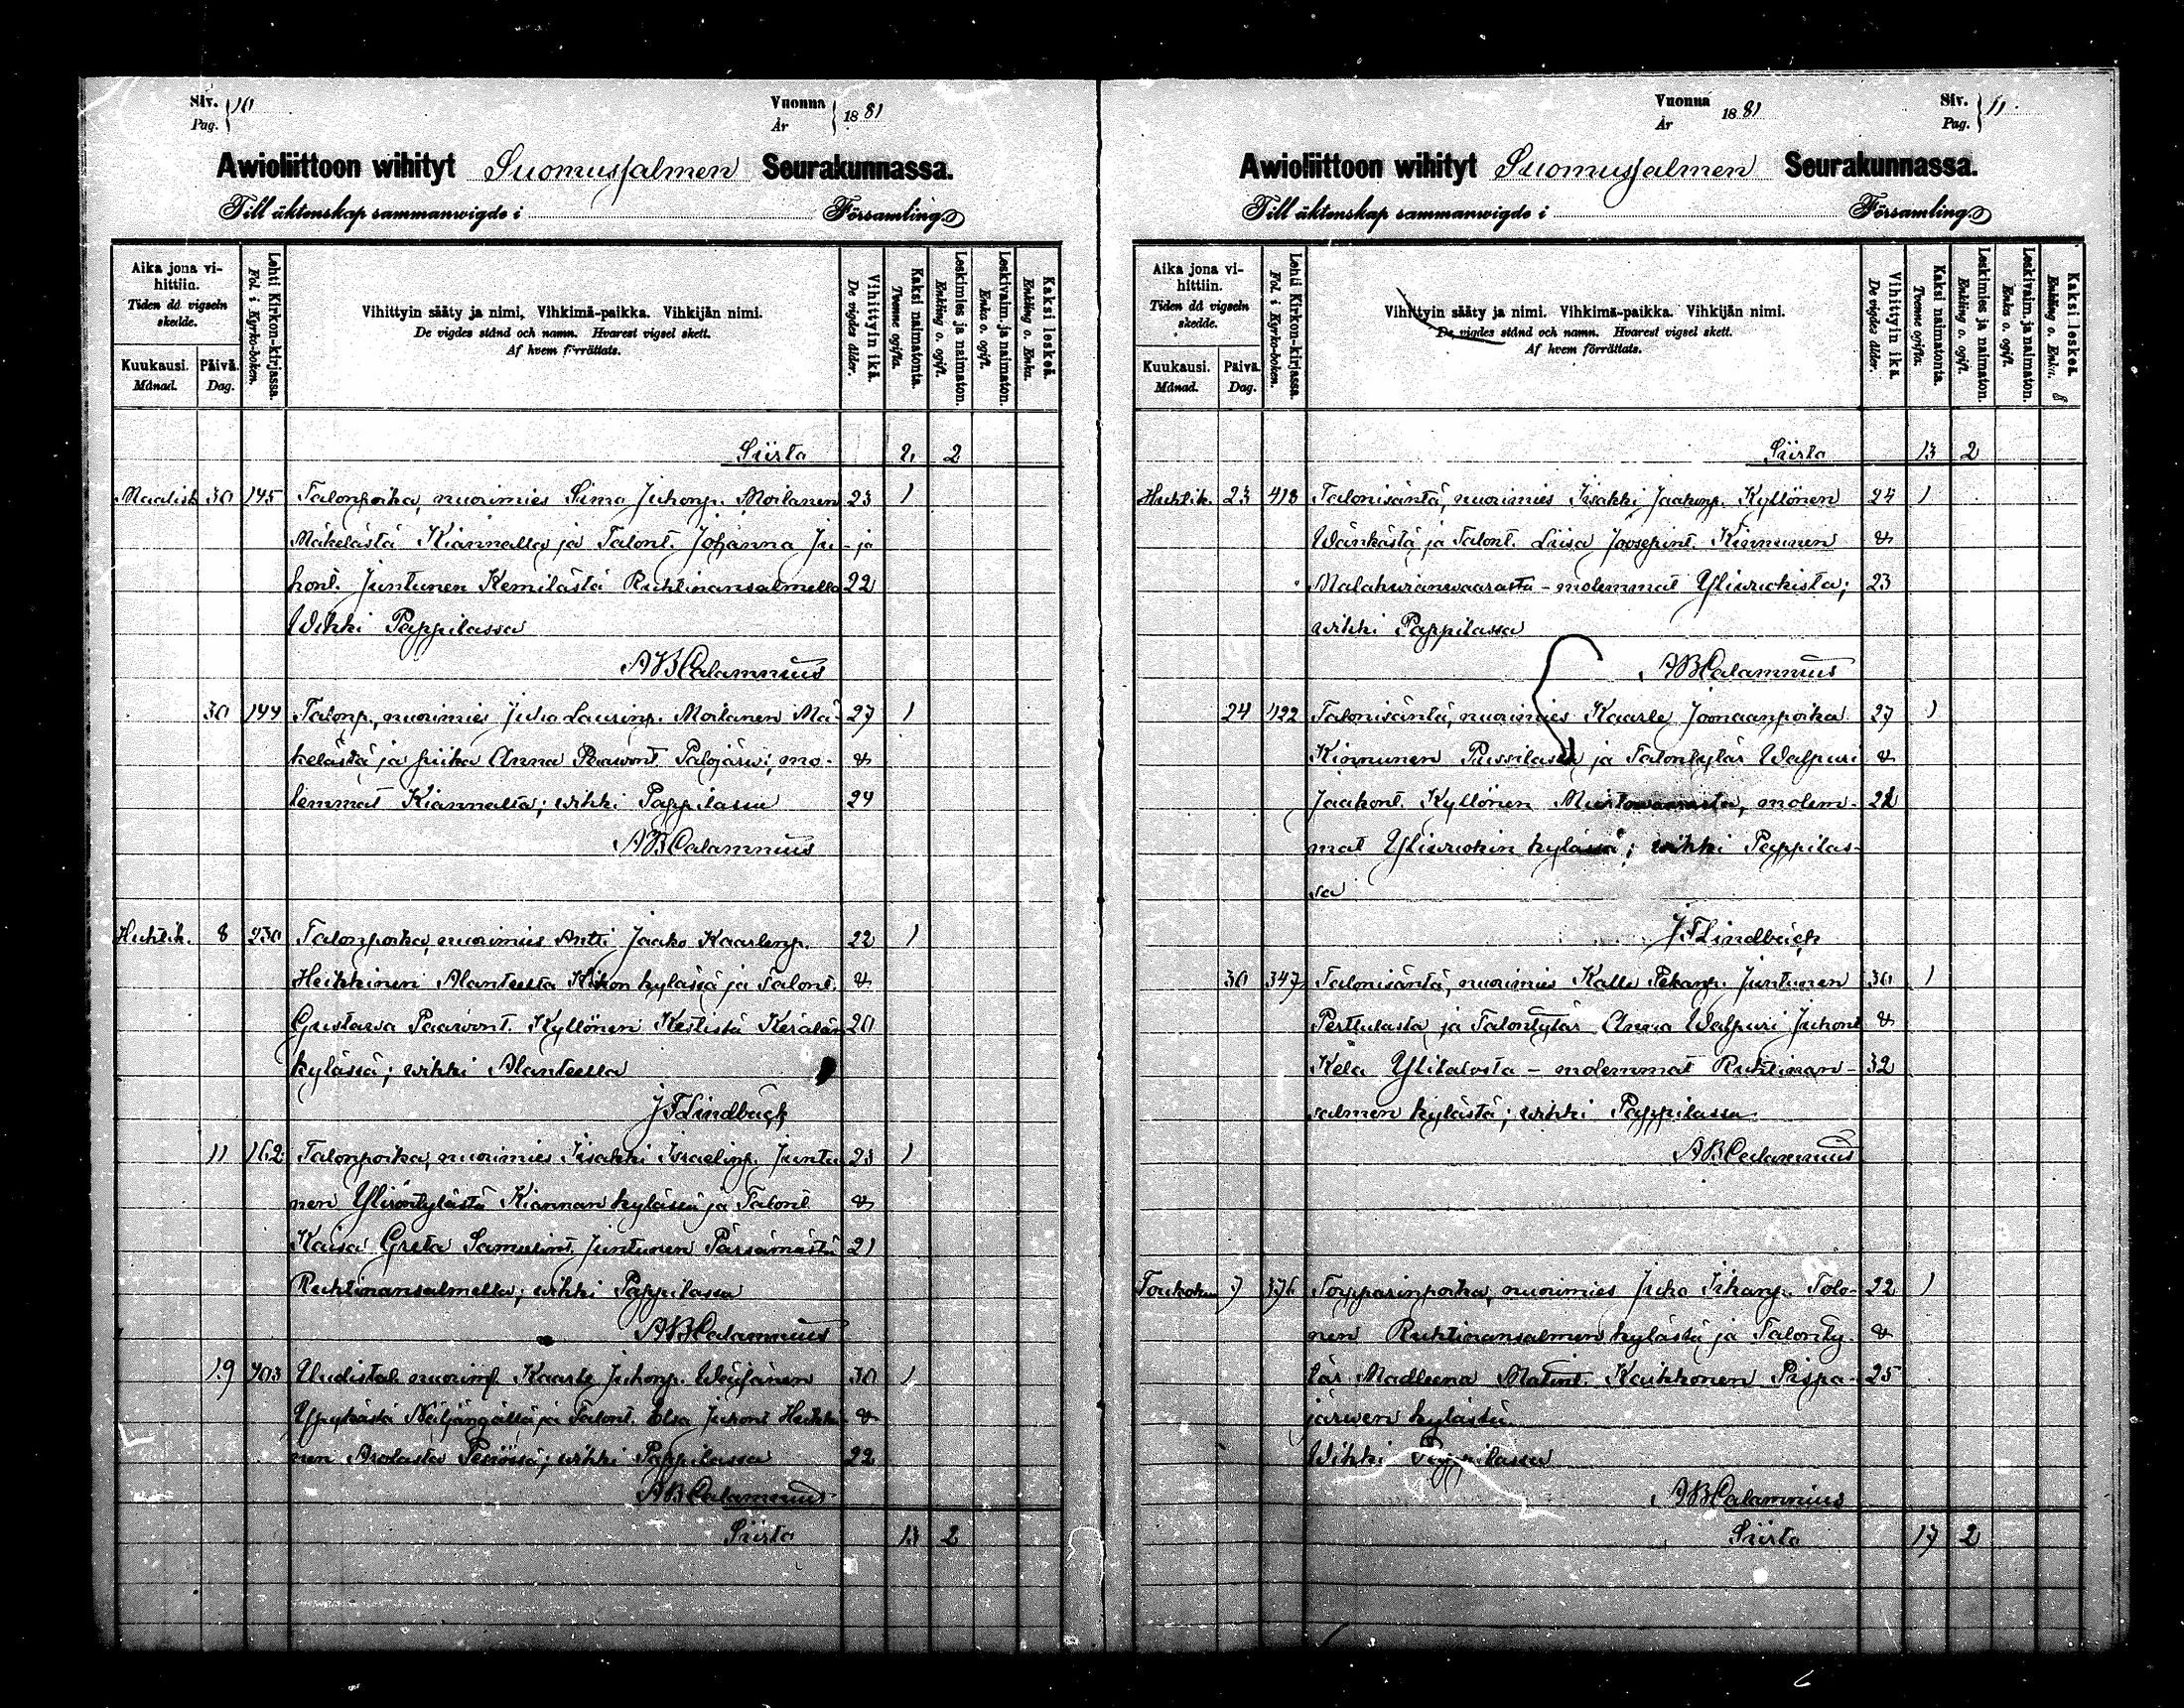 Siv. Pag. 10
Vuonna År 1881
Awioliittoon wihityt Suomussalmen Seurakunnassa.
Till äktenskap sammanwigde i Församling.
Aika jona vihittiin.
Tiden då vigseln skedde.
Kuukausi. Månad.
Päivä. Dag.
Lehti Kirkon-kirjassa.
Fol. i Kyrko-boken.
Vihittyin sääty ja nimi. Vihkimä-paikka. Vihkijän nimi.
De vigdes stånd och namn. Hvarest vigsel skett.
Af hvem förrättats.
Vihittyin ikä.
De vigdes ålder.
Kaksi naimatonta.
Tvenne ogifta.
Leskimies ja naimaton.
Enkling o. ogift.
Leskivaim. ja naimaton.
Enka o. ogift.
Kaksi leskeä.
Enkling o. Enka.
Siirto 2
Maalisk 30 145 Talonpoika, nuorimies Simo Juhonp. Moilanen 23 1
Mäkelästä Kiannalla ja Talont. Johanna Ju- ja
hont. Juntunen Kemilästä Ruhtinansalmella 22
Wihki Pappilassa
AB Calamnius
30 144 Talonp., nuorimies Juho Laurinp. Moilanen Mä- 27 1
kelästä ja piika Anna Paavont. Palojärwi; mo- &
lemmat Kiannalta; wihki Pappilassa 24
AB Calamnius
Huhtik. 8 230 Talonpoika, nuorimies Antti Jaako Kaarlenp. 22 1
Heikkinen Alanteesta kylässä ja Talont. &
Gustaava Paavont. Kyllönen Kestistä Kerälän 20
kylässä; wihki Alanteella
JFLindbäck
11 162 Talonpoika, nuorimies Iisakki Israelinp. Juntu 23 1
nen Kiannan kylässä ja Talont. &
Kaisa Greta Samulint. Juntunen Pärsämästä 21
Ruhtinansalmella; wihki Pappilassa
AB Calamnius
19 403 Uudistal. nuorim. Kaarle Juhonp. Wäyjänen 30 1
Näljängällä ja Talont. Elsa Juhont Heikki- &
nen Arolasta Pesiössä; wihki Pappilassa 22
AB Calamnius
Siirto 13 2
Vuonna År 1881
Siv. Pag. 11.
Awioliittoon wihityt Suomussalmen Seurakunnassa.
Till äktenskap sammanwigde i Församling.
Aika jona vihittiin.
Tiden då vigseln skedde.
Kuukausi. Månad.
Päivä. Dag.
Lehti Kirkon-kirjassa.
Fol. i Kyrko-boken.
Vihittyin sääty ja nimi. Vihkimä-paikka. Vihkijän nimi.
De vigdes stånd och namn. Hvarest vigsel skett.
Af hvem förrättats.
Vihittyin ikä.
De vigdes ålder.
Kaksi naimatonta.
Tvenne ogifta.
Leskimies ja naimaton.
Enkling o. ogift.
Leskivaim. ja naimaton.
Enka o. ogift.
Kaksi leskeä.
Enkling o. Enka.
Siirto 13 2
Huhtik. 23 418 Talonisäntä, nuorimies Iisakki Jaakonp. Kyllönen 24 1
Wänkästä ja Talont. Liisa Joosepint. Kinnunen &
Malahwianwaarasta - molemmat Yliwuokista; 23
wihki Pappilassa
AB Calamnius
24 422 Talonisäntä, nuorimies Kaarle Joonaanpoika 27 1
Kinnunen Pussilasta ja Talontytär Walpuri &
Jaakont. Kyllönen Mustawaarasta, molem-
mat Yliwuokin kylässä; wihki Pappilas-
sa
JFLindbäck
30 347 Talonisäntä, nuorimies Kalle Pekanp. Juntunen 30 1
Perttulasta ja Talontytär Anna Walpuri Juhont &
Kela Ylitalosta - molemmat Ruhtinan- 32
salmen kylästä; wihki Pappilassa
AB Calamnius
Toukokuu 7 376 Torpparinpoika, nuorimies Juho Iikanp. Tolo- 22 1
nen Ruhtinansalmen kylästä ja Talonty- &
tär Madleena Matint. Karkkonen Pispa- 25
järwen kylästä.
Wihki Pappilassa
AB Calamnius
Siirto 17 2